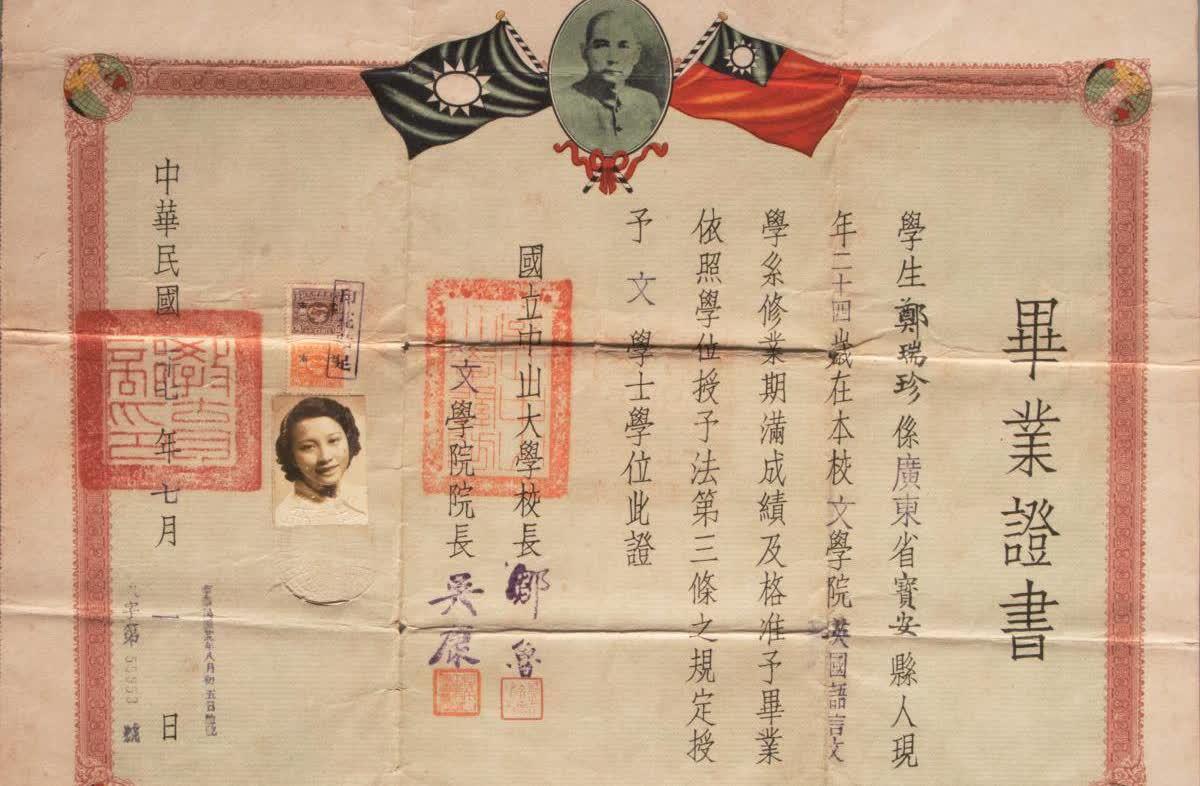 畢業證書
學生鄭瑞珍係廣東省寶安縣人現
年二十四歲在本校文學院英國語言文
學系修業期滿成績及格准予畢業
依照學位授予法第三條之規定授
予文學士學位此證
國立中山大學校長鄒魯
文學院院長吳康
中華民國廿七年七月一日
教育部印
字第55953號